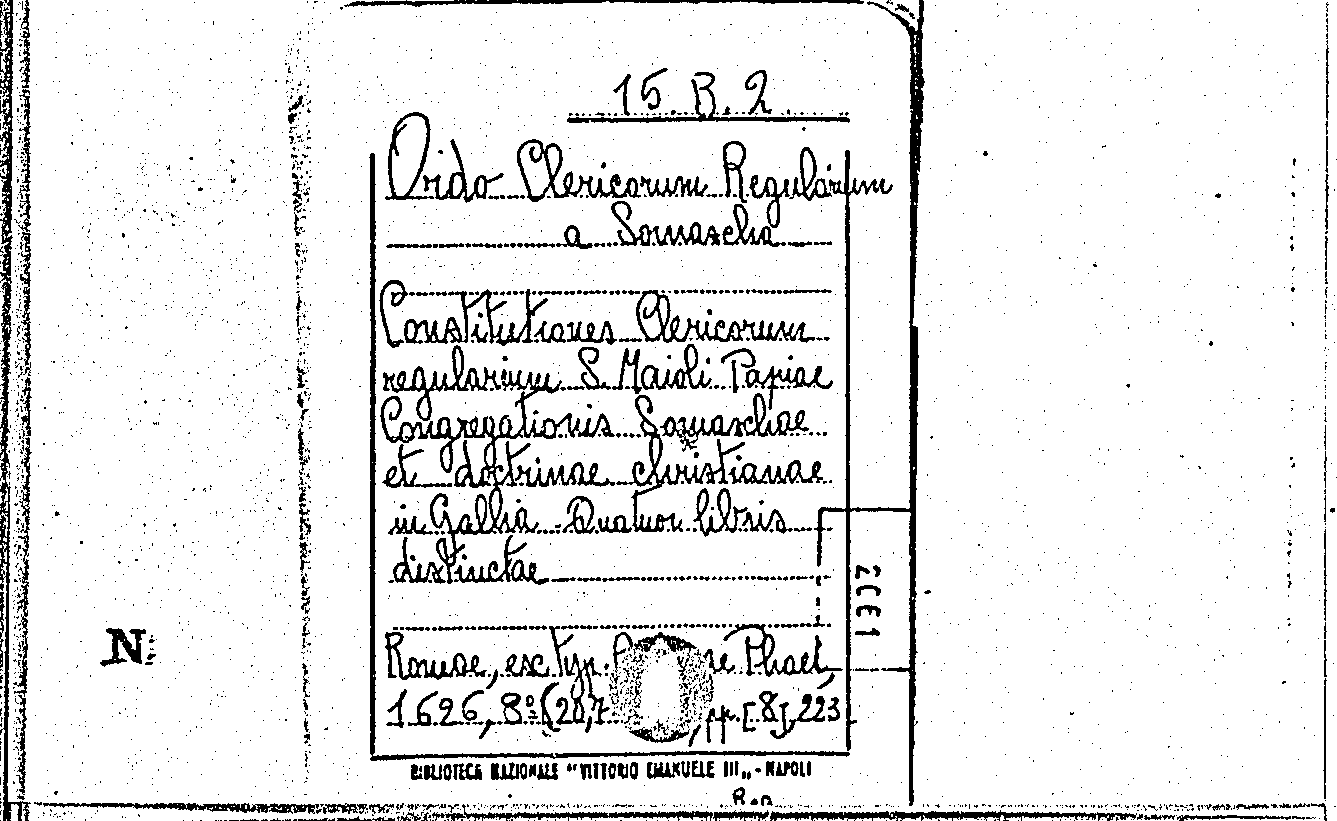 15. B. 2.
Ordo Clericorum Regularium
a Somascha
Constitutiones Clericorum
regularium S. Maioli Papiae
Congregationis Somaschae
et doctrinae christianae
in Gallia. Quatuor libris
distinctae
N.
Romae, ex typ. Phaei,
1626, 8° (20,7 , pp. [8], 223
BIBLIOTECA NAZIONALE "VITTORIO EMANUELE III„ - NAPOLI